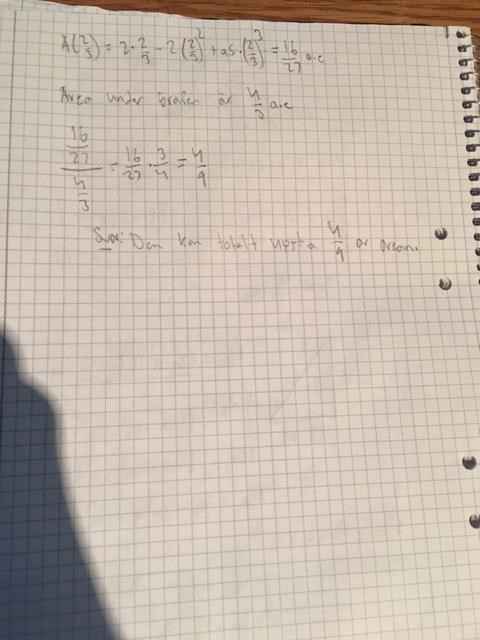 A(2/3) = 2·2/3 - 2(2/3)² + 0,5·(2/3)³ = 16/27 a.e
Area under grafen är 4/3 a.e
(16/27)/(4/3) = 16/27 · 3/4 = 4/9
Svar: Den kan totalt uppta 4/9 av arean.